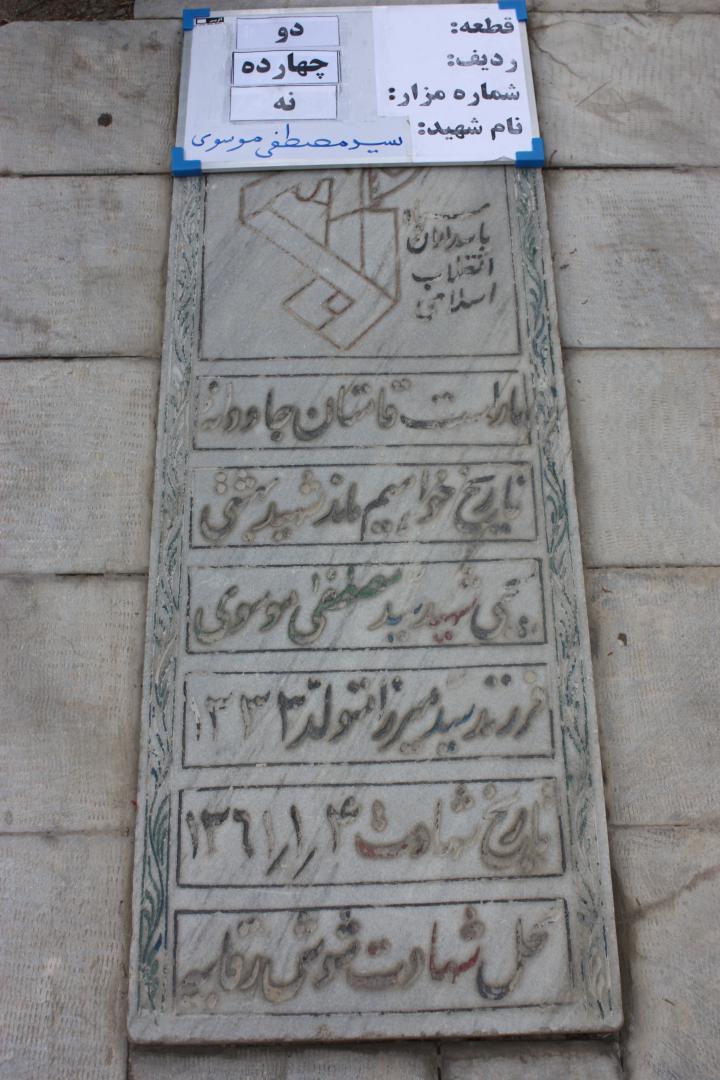 قطعه: دو
ردیف: چهارده
شماره مزار: نه
نام شهید: سید مصطفی موسوی
سپاه
پاسداران
انقلاب
اسلامی
ما راست قامتان جاودانه
تاریخ خواهیم ماند شهید بهشتی
شهید سید مصطفی موسوی
فرزند سید میرزا متولد ۱۳۳۳
تاریخ شهادت ۱۳۶۱/۱/۴
محل شهادت شوش رقابیه